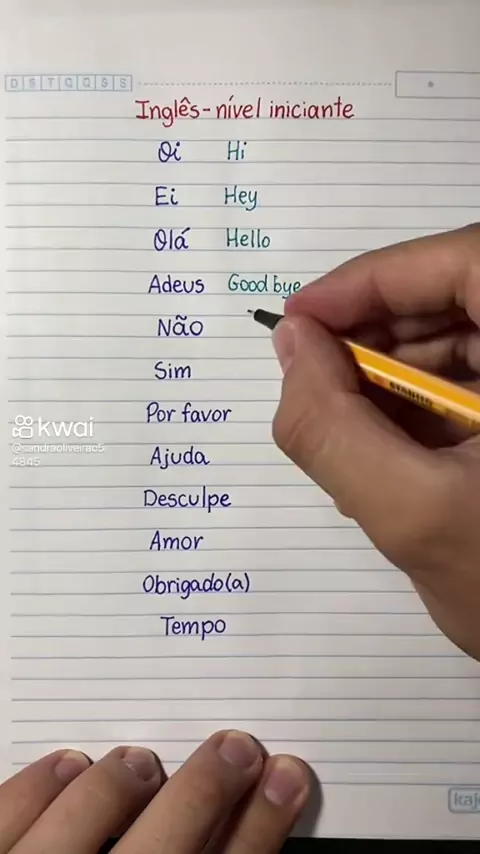 D S T Q Q S S
Inglês - nível iniciante
Oi Hi
Ei Hey
Olá Hello
Adeus Good bye
Não
Sim
Por favor
kwai
@sandraoliveirac5
4845
Ajuda
Desculpe
Amor
Obrigado(a)
Tempo